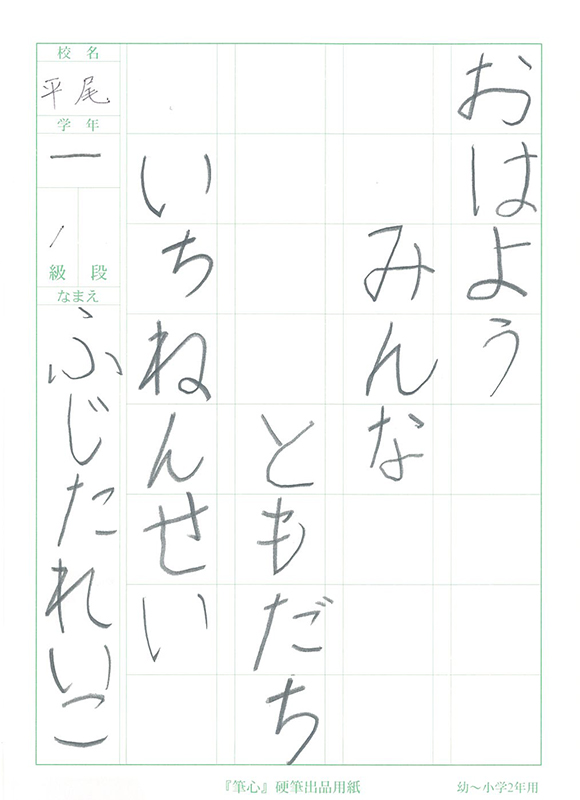 おはよう
みんな
ともだち
いちねんせい
校名
平尾
学年
一
級 段
なまえ
ふじたれいこ
『筆心』硬筆出品用紙
幼〜小学2年用